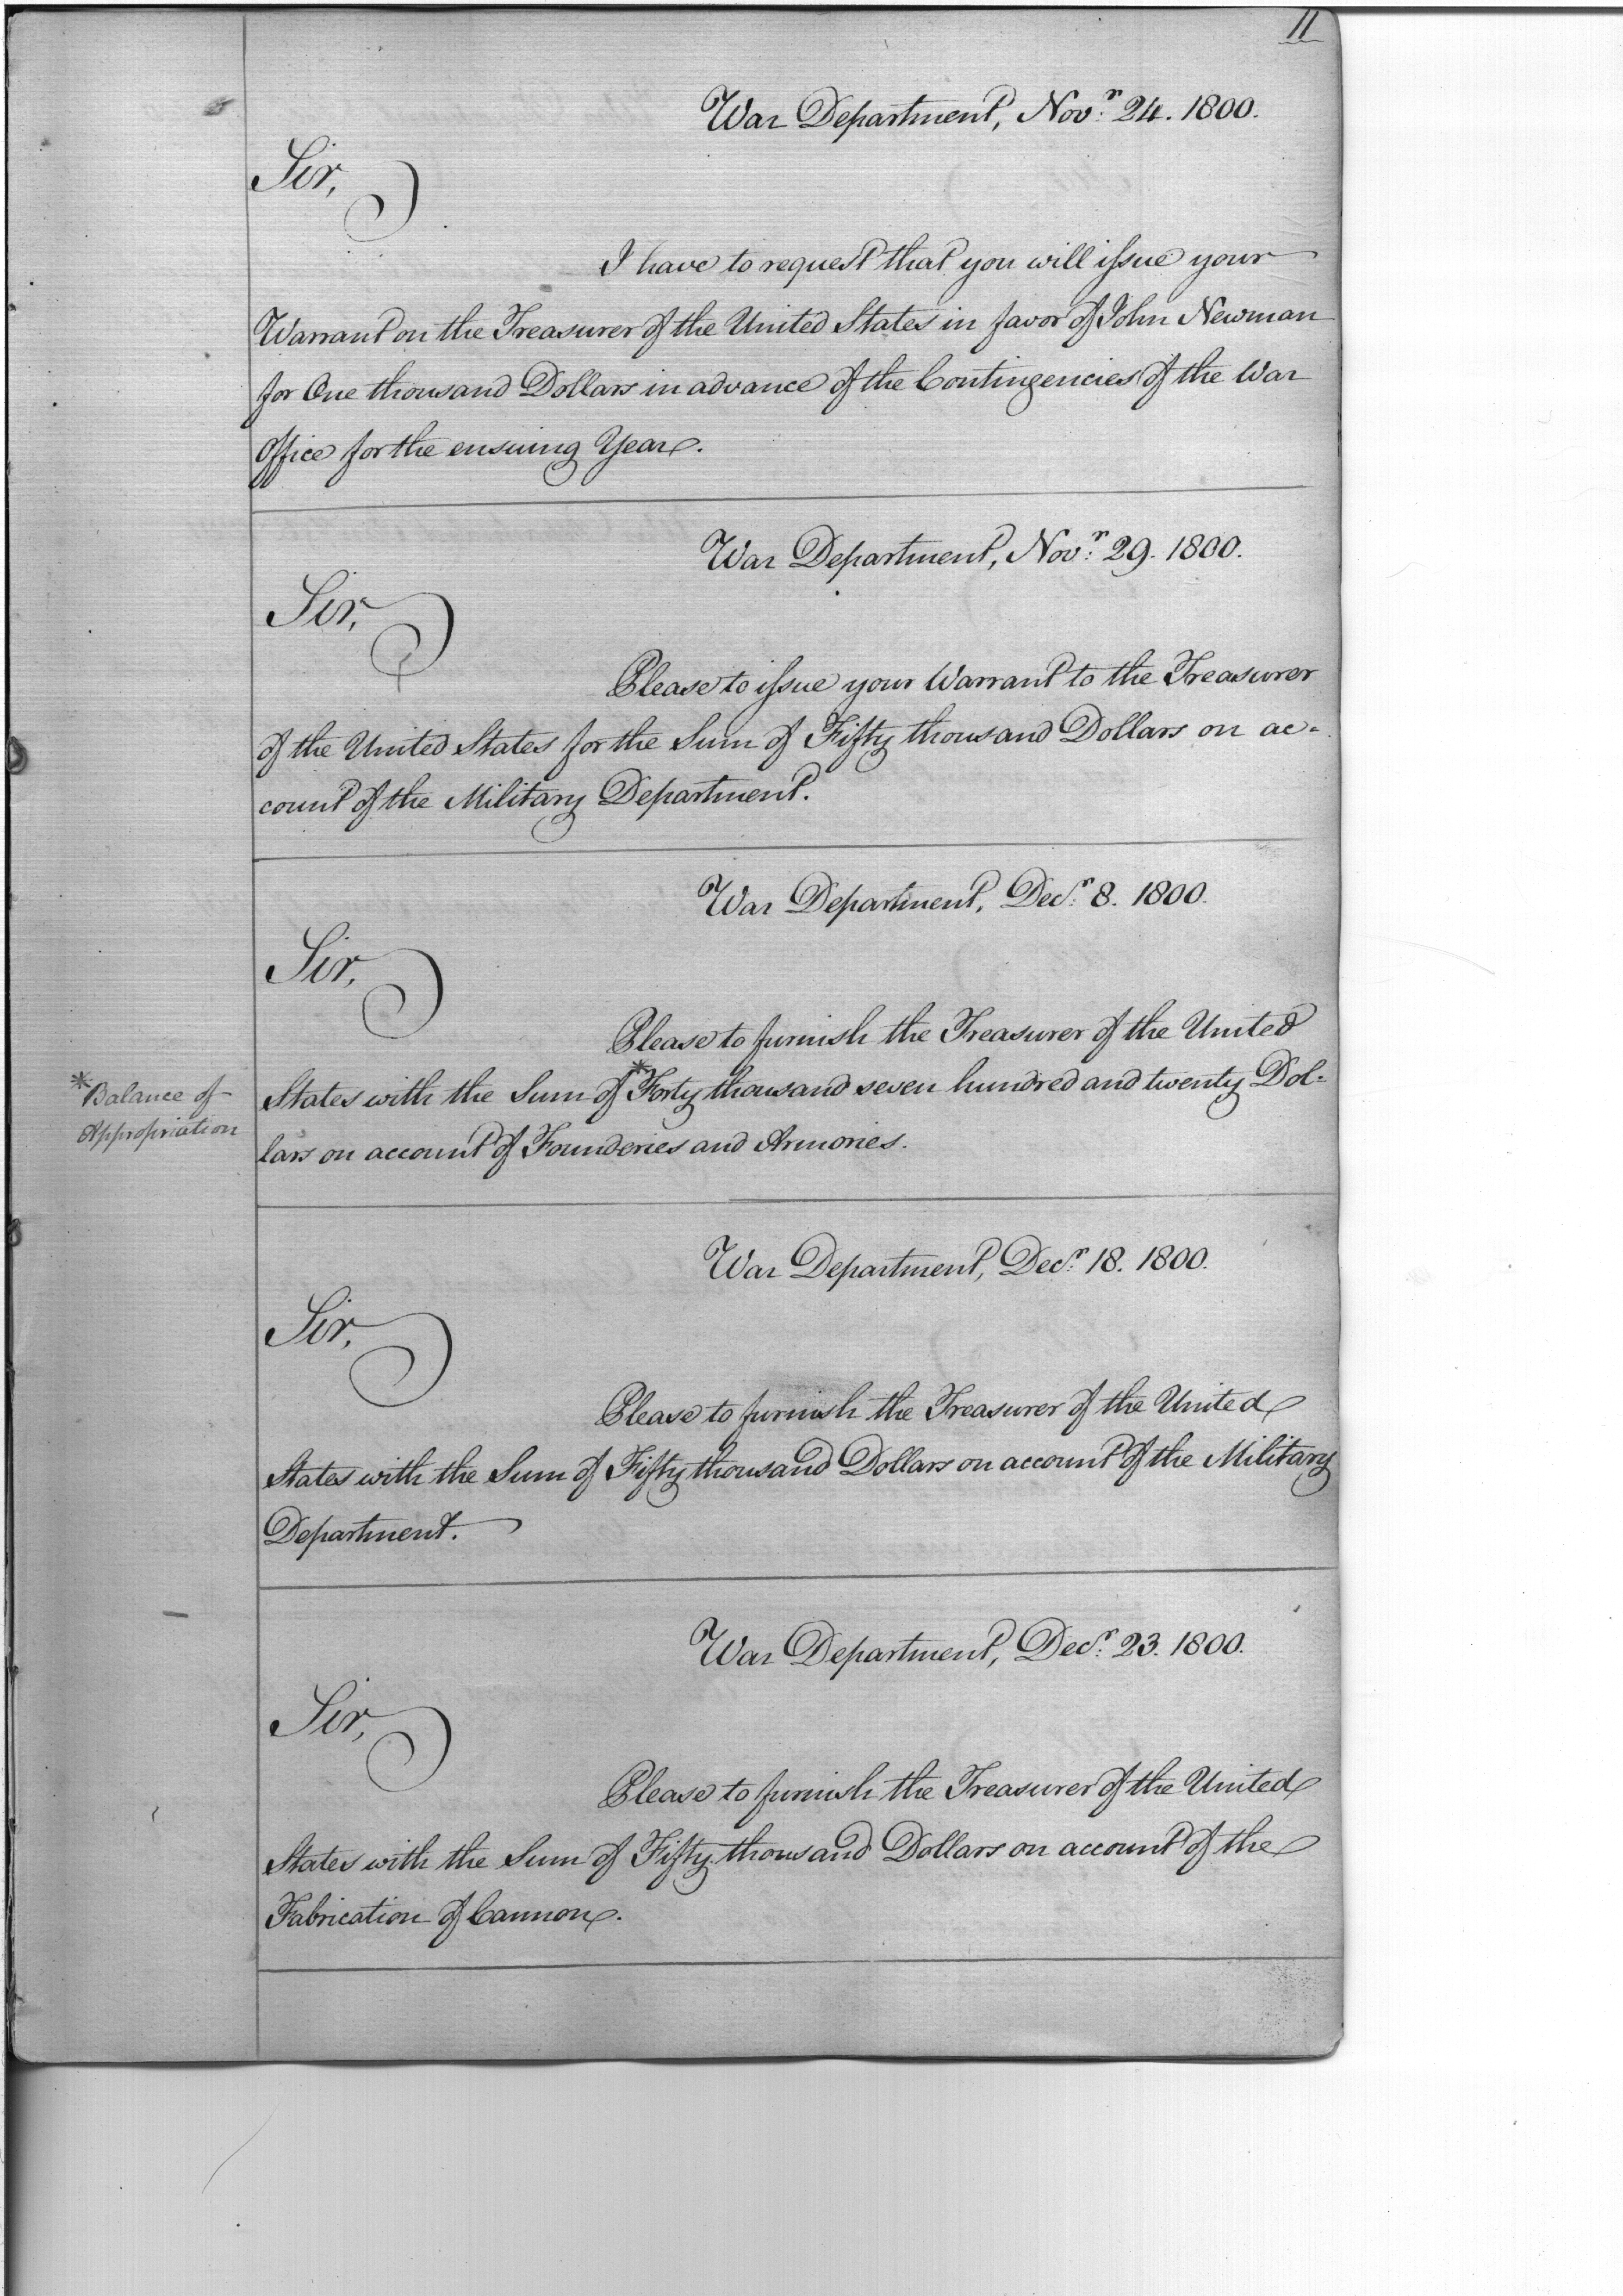 11
War Department, Nov.r 24. 1800.
Sir,
I have to request that you will issue your
Warrant on the Treasurer of the United States in favor of John Newman
for One thousand Dollars in advance of the Contingencies of the War
Office for the ensuing Year.
War Department, Nov.r 29. 1800.
Sir,
Please to issue your Warrant to the Treasurer
of the United States for the Sum of Fifty thousand Dollars on ac=
count of the Military Department.
War Department, Dec.r 8. 1800.
Sir,
Please to furnish the Treasurer of the United
States with the Sum of *Forty thousand seven hundred and twenty Dol=
lars on account of Founderies and Armories.
*Balance of
Appropriation
War Department, Dec.r 18. 1800.
Sir,
Please to furnish the Treasurer of the United
States with the Sum of Fifty thousand Dollars on account of the Military
Department.
War Department, Dec.r 23. 1800.
Sir,
Please to furnish the Treasurer of the United
States with the Sum of Fifty thousand Dollars on account of the
Fabrication of Cannon.